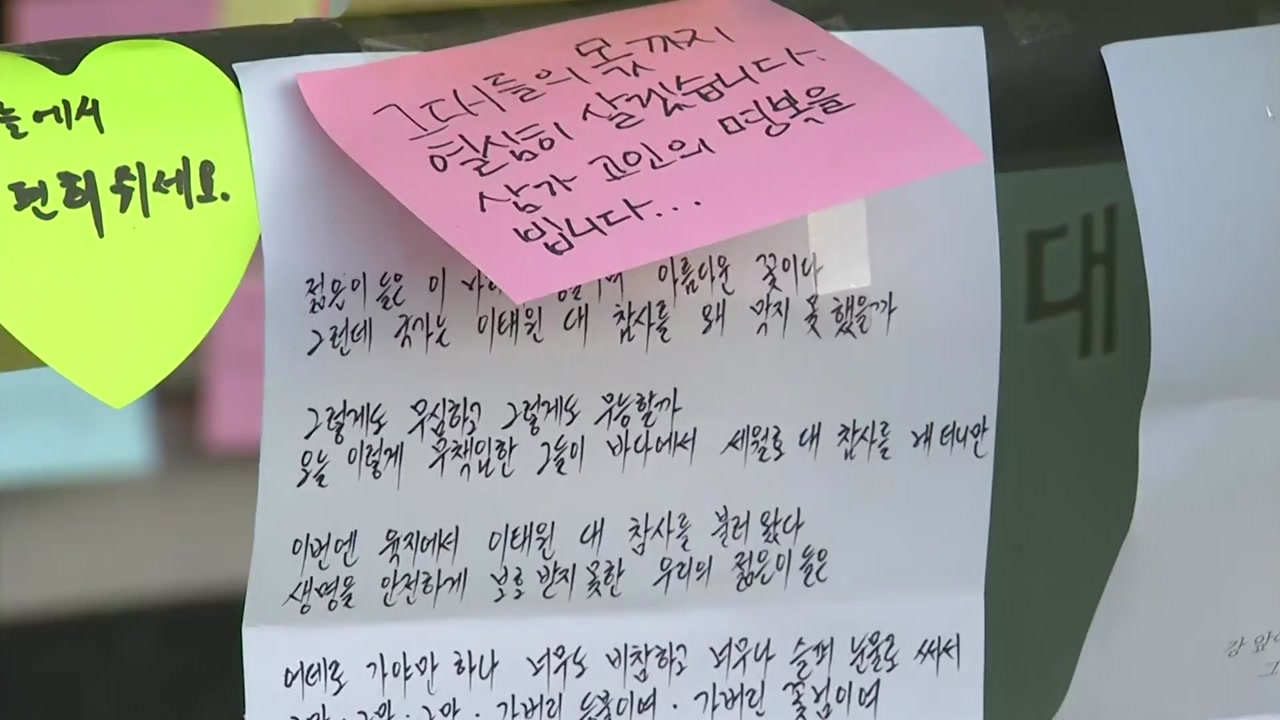 늘에서
편히 쉬세요.
그대들의 몫까지
열심히 살겠습니다.
삼가 고인의 명복을
빕니다...
젊은이들은 이 아름다운 꽃이다
그런데 국가는 이태원 대 참사를 왜 막지 못했을까
그렇게도 무심하고 그렇게도 무능할까
오늘 이렇게 무책임한 그들이 바다에서 세월호 대 참사를 내더니만
이번엔 육지에서 이태원 대 참사를 불러왔다
생명을 안전하게 보호 받지 못한 우리의 젊은이들은
어데로 가야만 하나 너무도 비참하고 너무나 슬퍼 눈물로 써서
가버린 꽃님이여
대
강 앞에
그